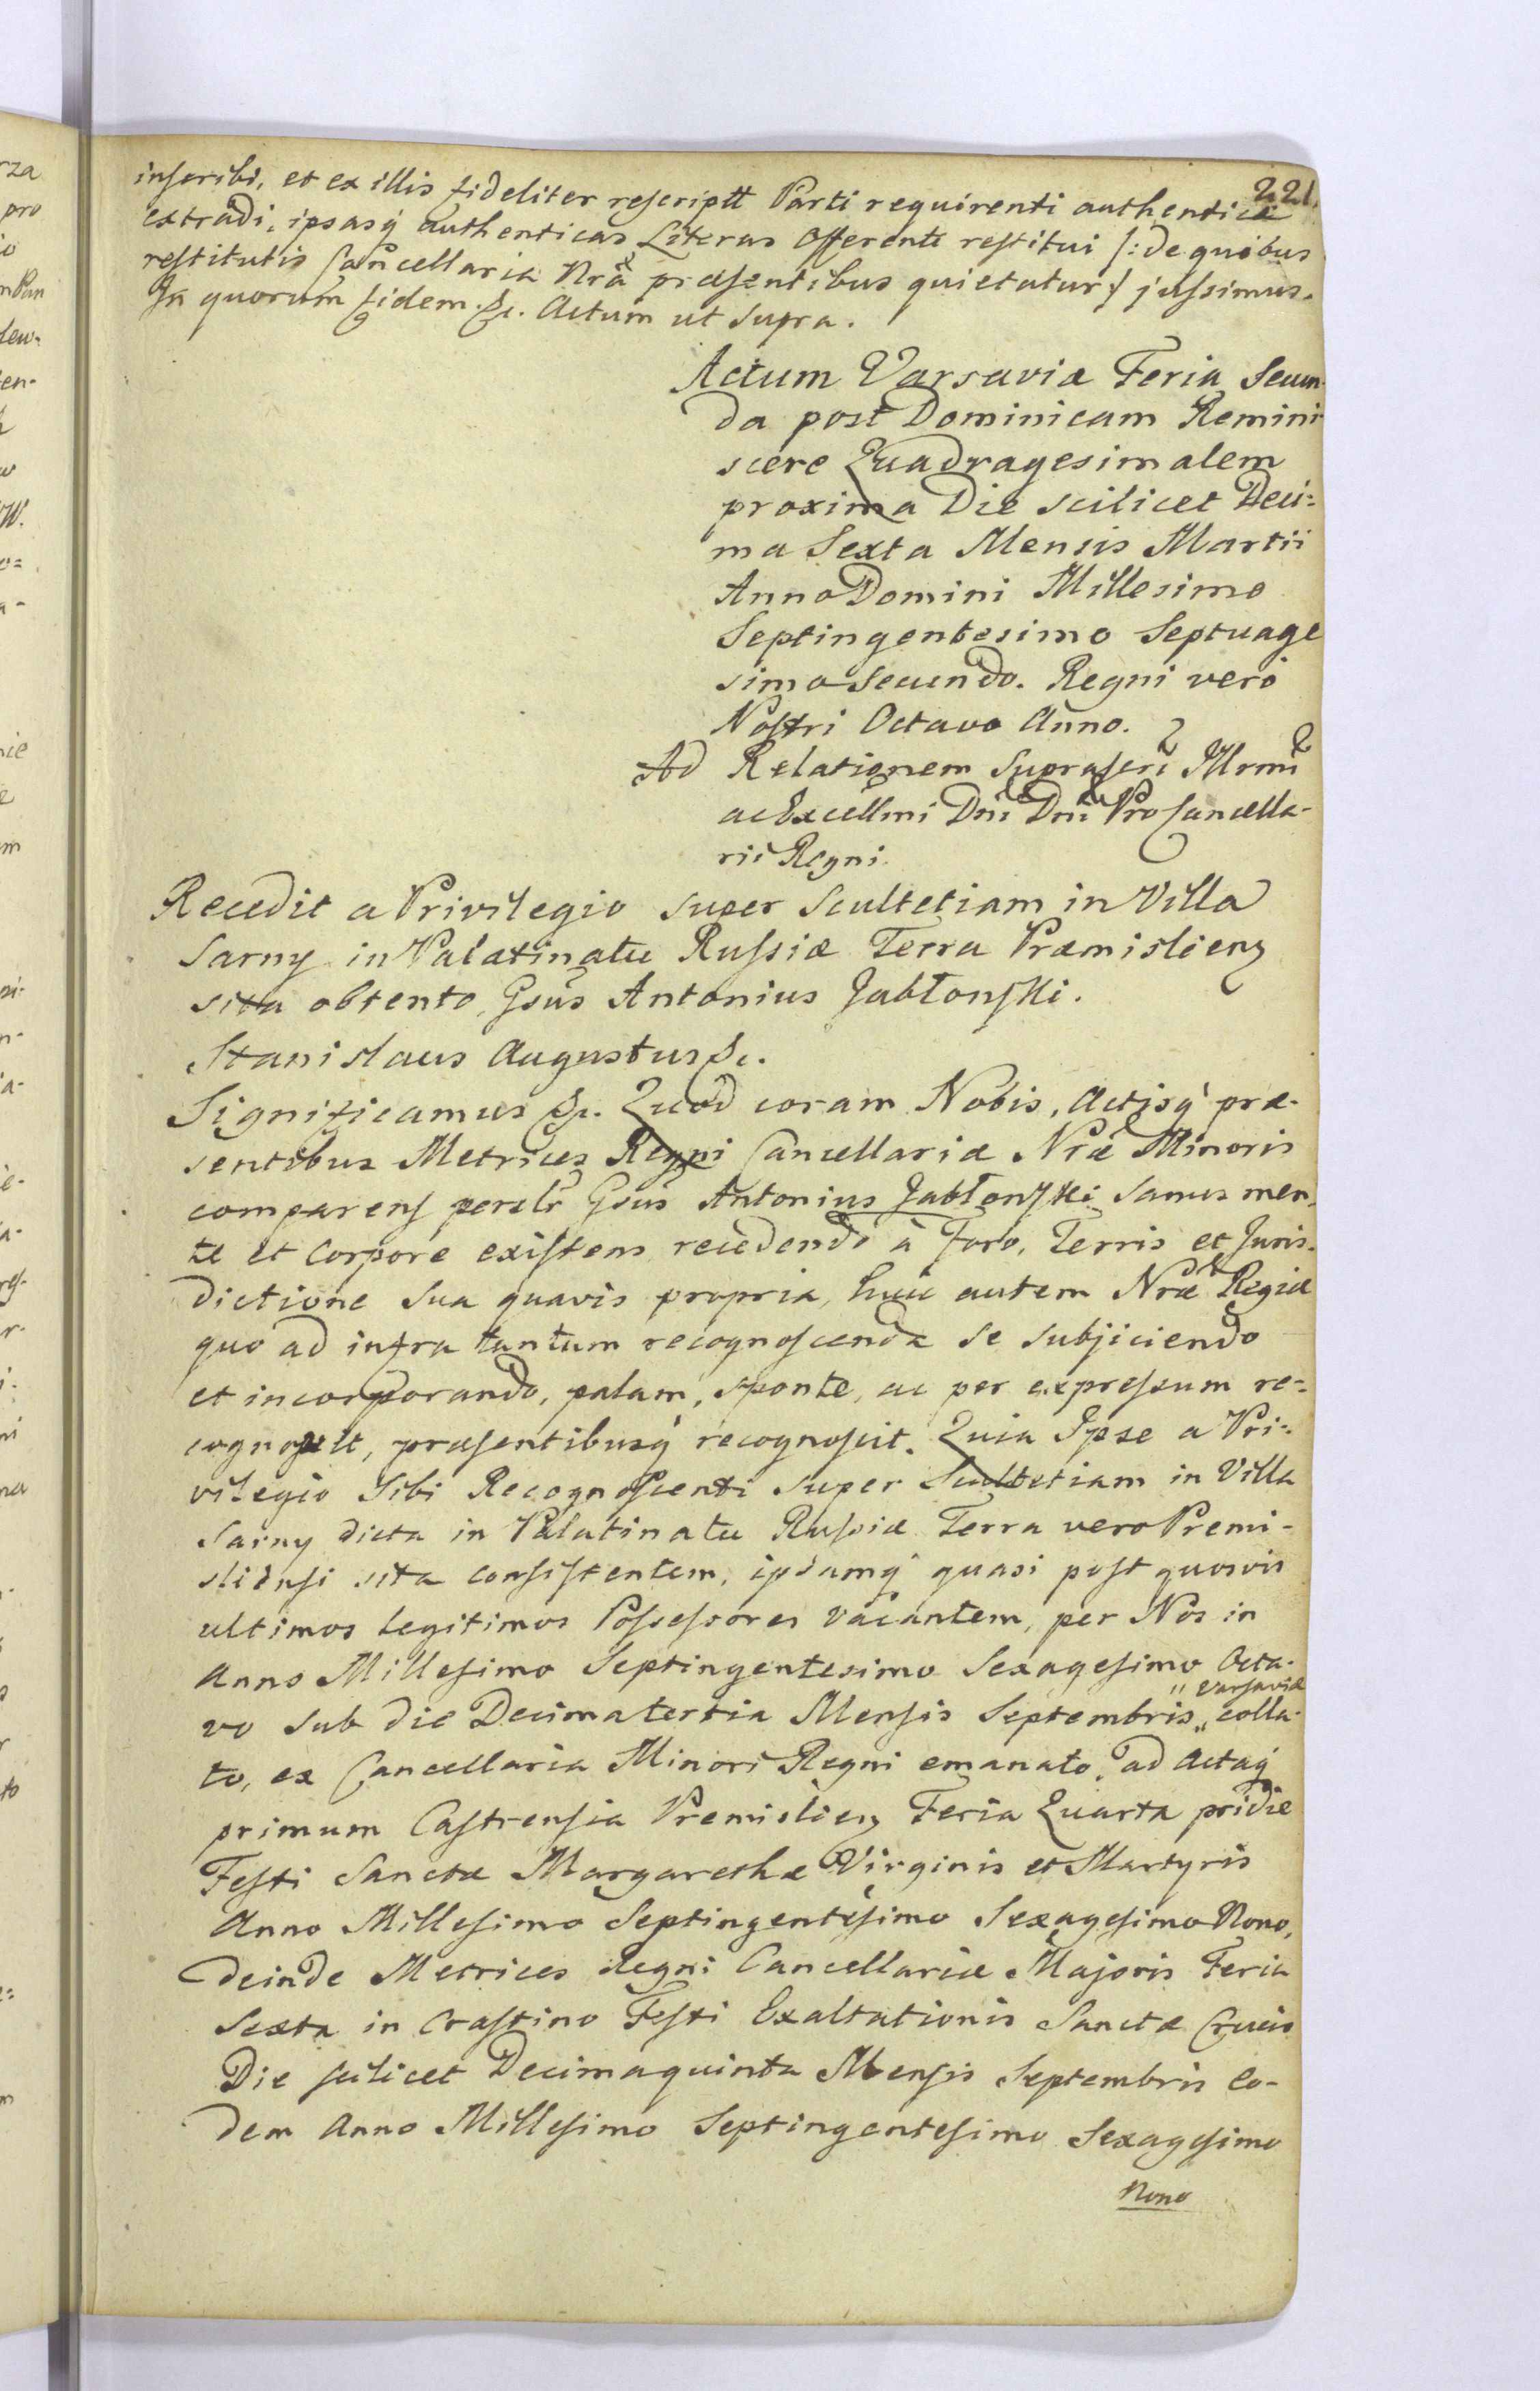 221.
inscribi, et ex illis fideliter rescriptt Parti requirenti authentice
extradi, ipsasq authenticas Literas Offerenti restitui /: de quibus
restitutis Cancellaria Nra præsentibus quietatur :/ jussimus.
In quorum fidem &c. Actum ut supra.
Actum Varsaviæ Feria Secun-
da post Dominicam Remini-
scere Quadragesimalem
proxima Die scilicet Deci=
ma Sexta Mensis Martii
Anno Domini Millesimo
Septingentesimo Septuage
simo Secundo. Regni vero
Nostri Octavo Anno.
Ad Relationem Suprascri Illrmi
ac Excellmi Dni Dni Pro Cancella-
rii Regni.
Recedit a Privilegio super Scultetiam in Villa
Sarny in Palatinatu Russiæ Terra Præmislienz
sita obtento, Gsus Antonius Jabłonski.
Stanislaus Augustus &c.
Significamus &c. Quod coram Nobis, Actisq præ-
sentibus Metrices Regni Cancellariæ Nræ Minoris
comparens perslr Gsus Antonius Jabłonski sanus men-
te et Corpore existens recedendo à Foro, Terris et Juris-
dictione sua quavis propria, huic autem Nræ Regiæ
quo ad infra tantum recognoscenda se subjiciendo
et incorporando, palam, sponte, ac per expressum re=
cognovit, præsentibusq recognoscit. Quia Ipse a Pri-
vilegio Sibi Recognoscenti super Scultetiam in Villa
Sarny dicta in Palatinatu Russiæ Terra vero Premi-
sliensi sita consistentem, ipsamq quasi post quosvis
ultimos legitimos Possessores vacantem, per Nos in
Anno Millesimo Septingentesimo Sexagesimo Octa-
vo sub die Decimatertia Mensis Septembris " Varsaviæ colla-
to, ex Cancellaria Minori Regni emanato, ad Actaq
primum Castrensia Premislienz Feria Quarta pridie
Festi Sanctæ Margarethæ Virginis et Martyris
Anno Millesimo Septingentesimo Sexagesimo Nono,
deinde Metrices Regni Cancellariæ Majoris Feria
Sexta in Crastino Festi Exaltationis Sanctæ Crucis
Die scilicet Decimaquinta Mensis Septembris Eo-
dem Anno Millesimo Septingentesimo Sexagesimo
Nono